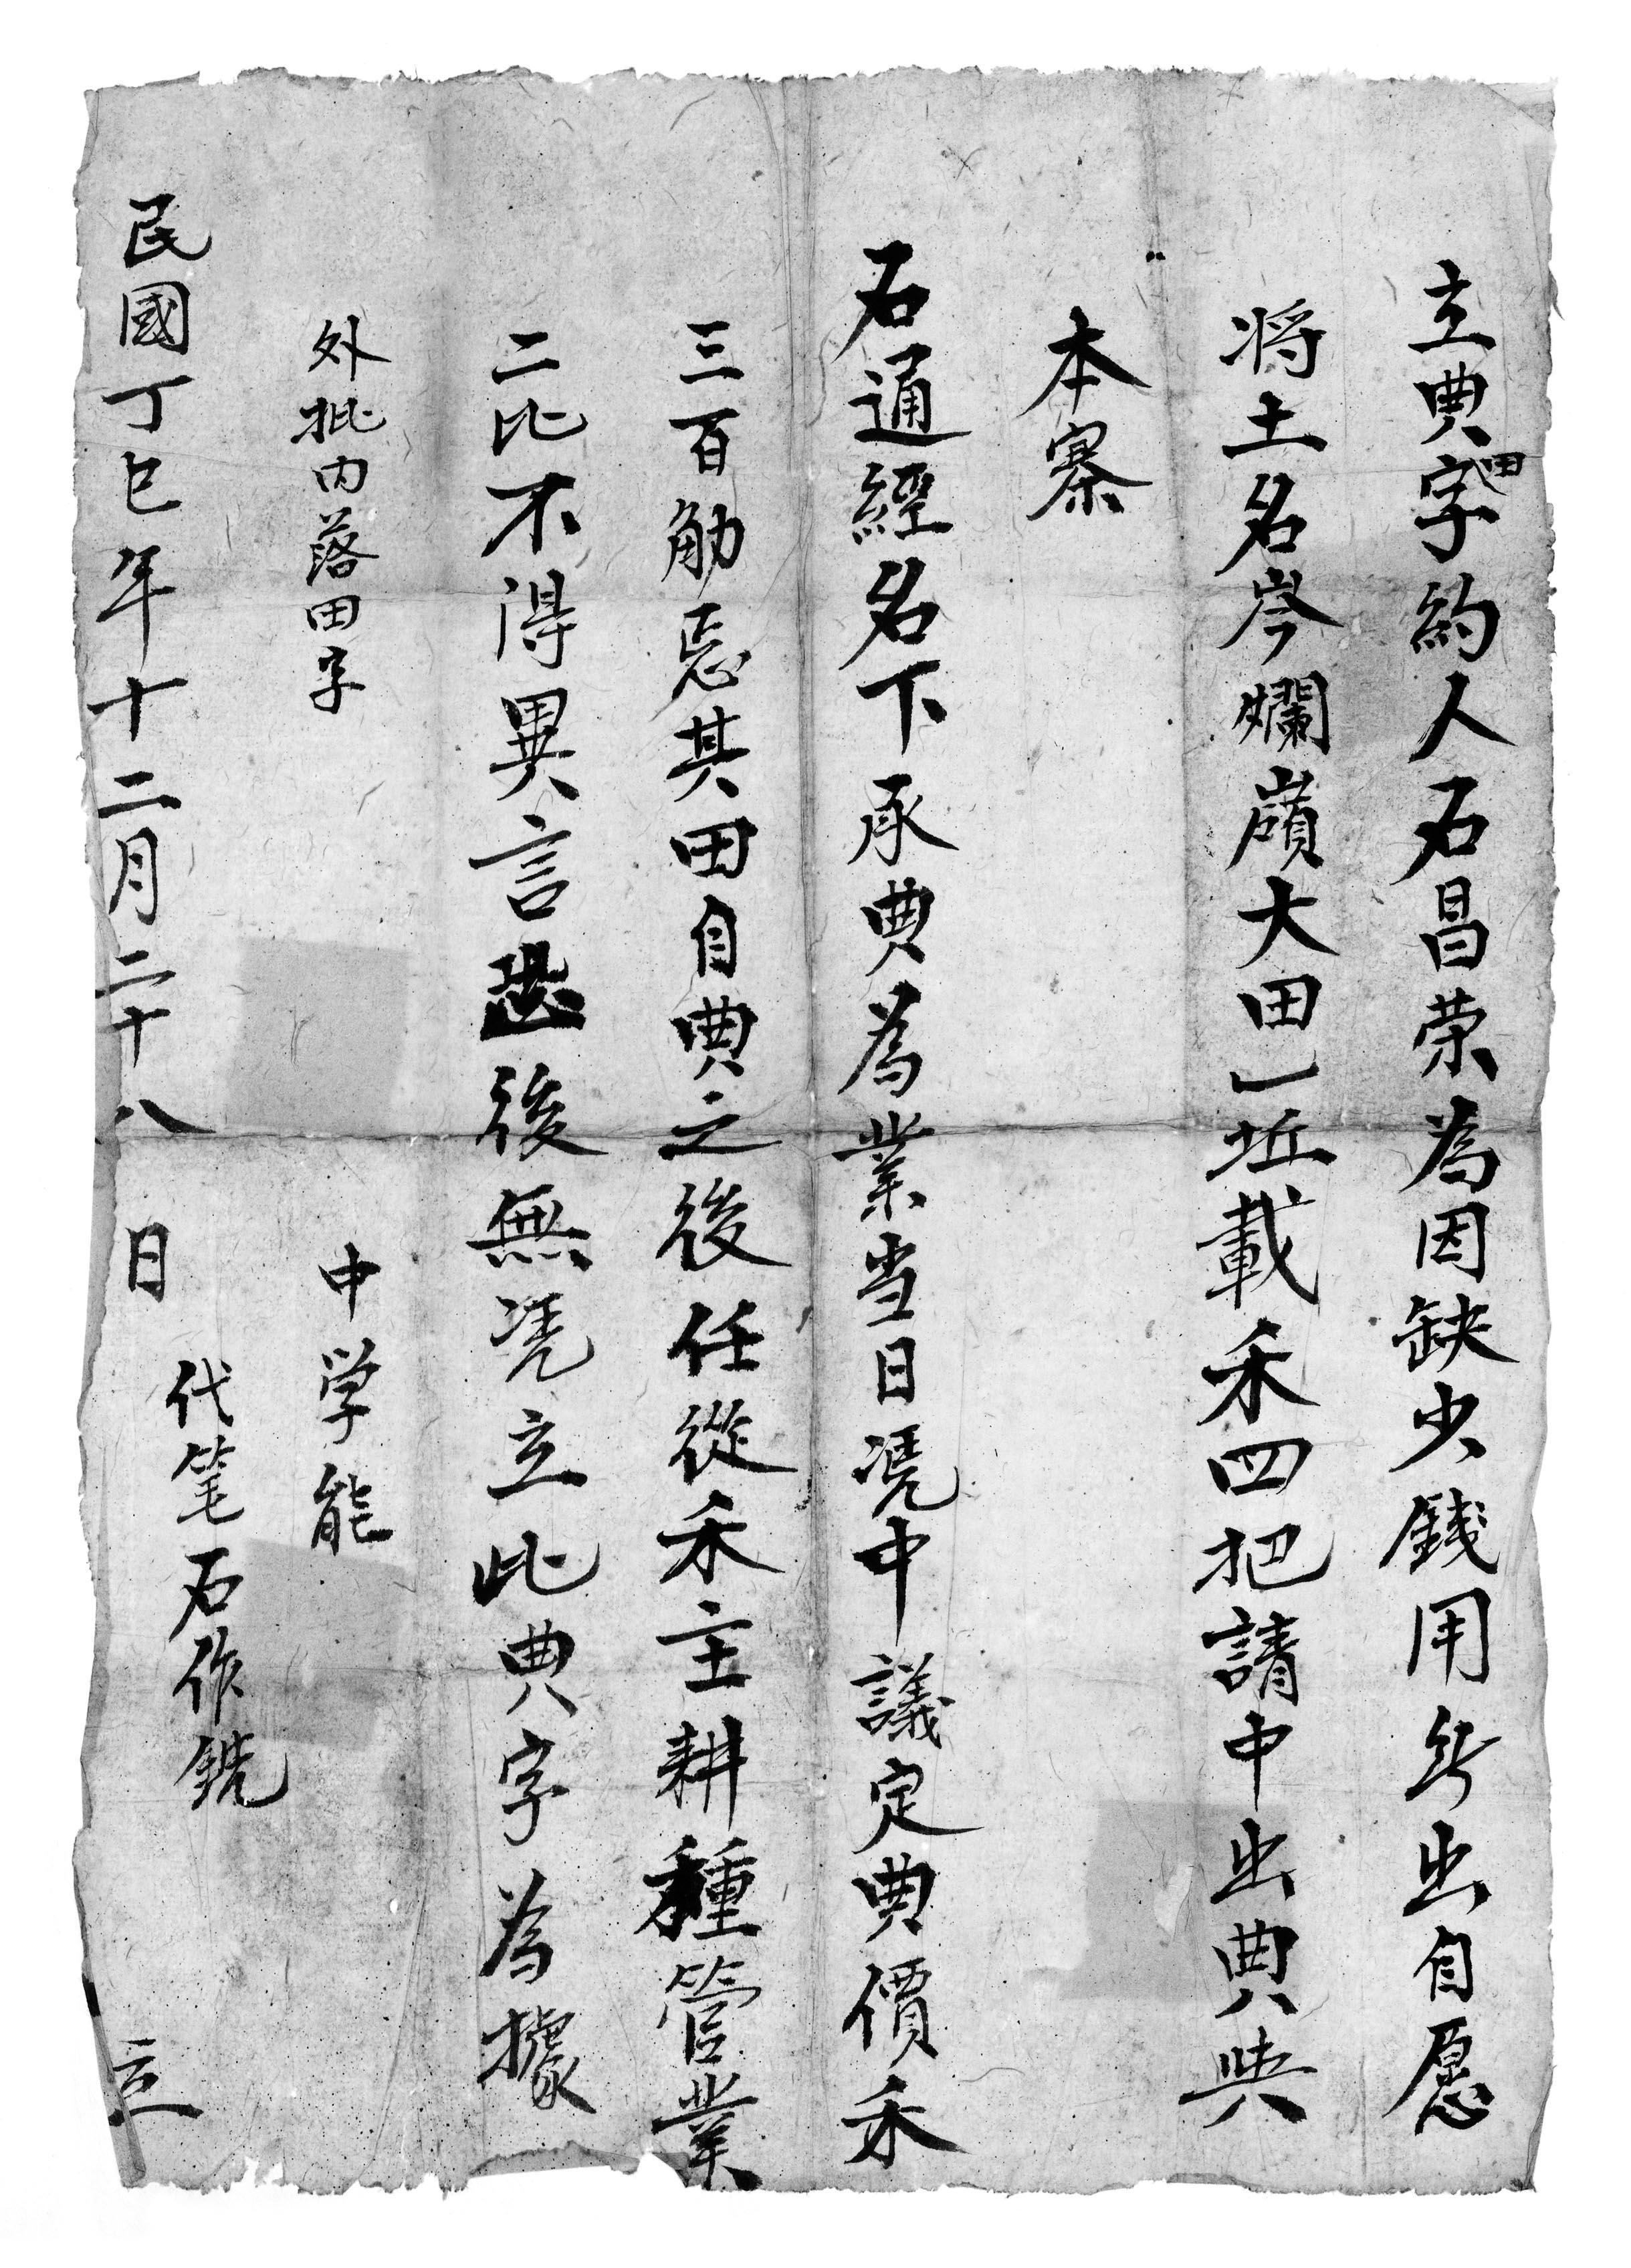 立典田字約人石昌荣為因缺少錢用無出自愿
将土名岑爛嶺大田一坵載禾四把請中出典與
本寨
石通經名下承典為業当日凭中議定典價禾
三百觔其田自典之後任從禾主耕種管業
二比不得異言恐後無凭立此典字為據
外批内落田字
中学能
代笔石作銑
民國丁巳年十二月二十八日立